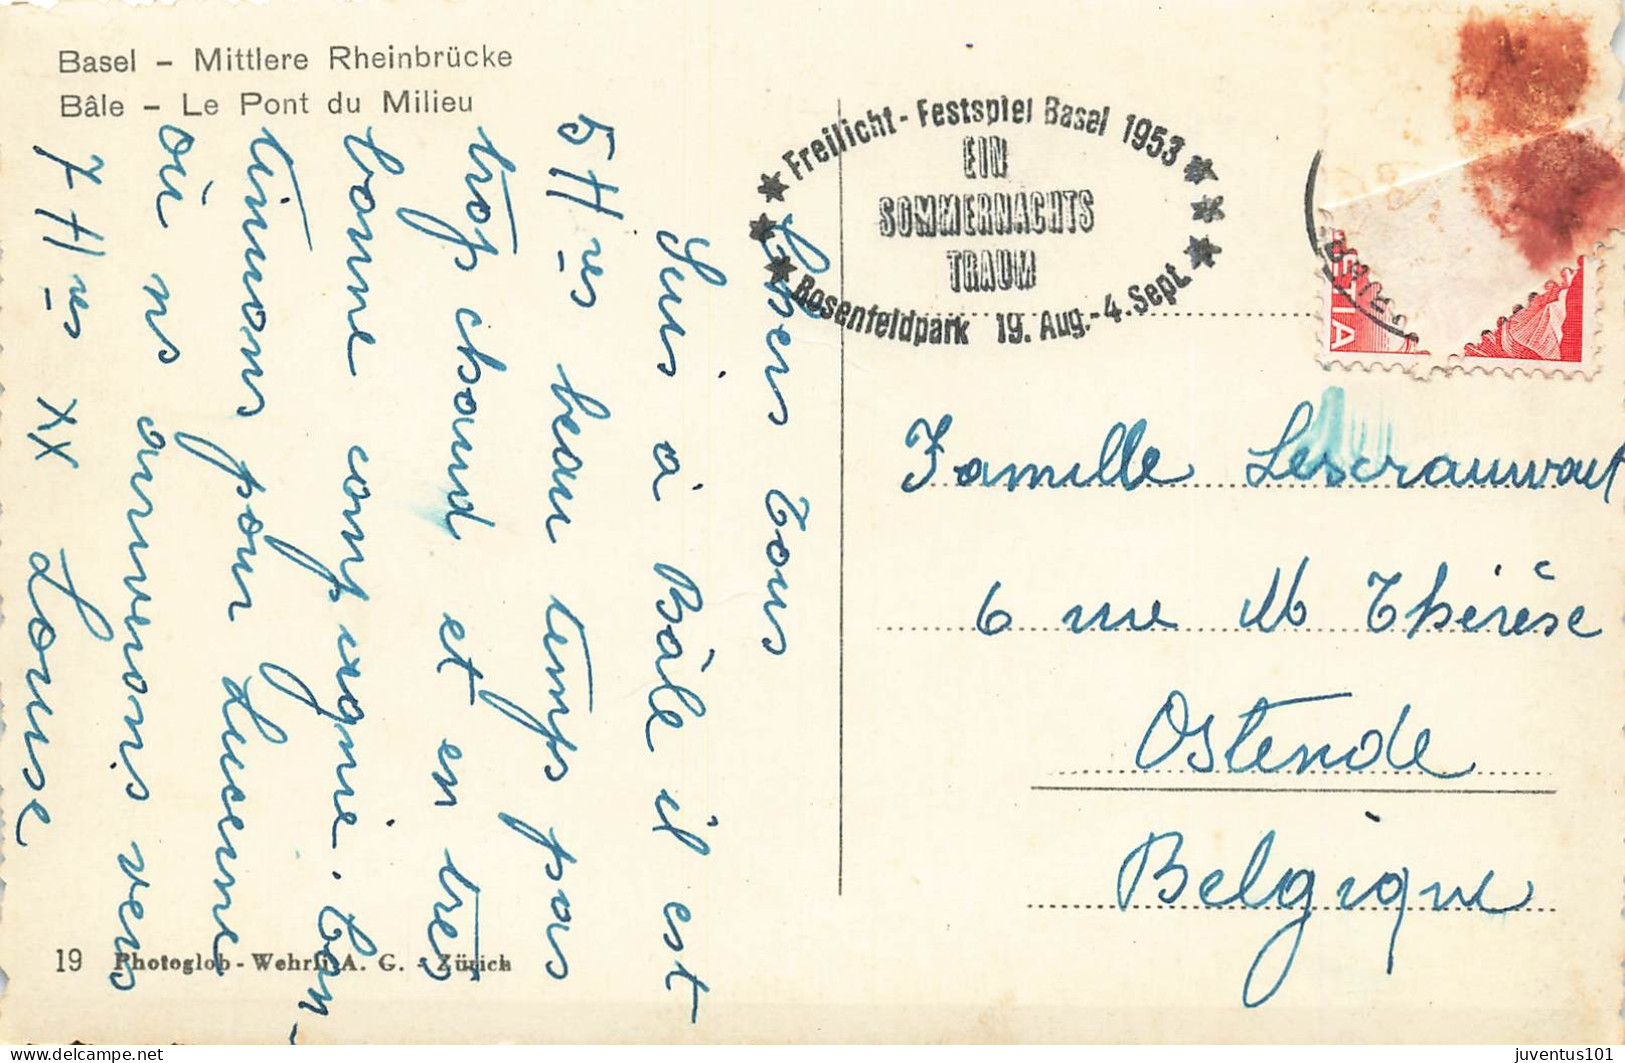 Basel – Mittlere Rheinbrücke
Bâle – Le Pont du Milieu
Chers Tous
Suis à Bâle il est
5 Hres beau temps pas
trop chaud et en très
bonne compagnie. Con-
tinuons pour Lucerne
où ns arriverons vers
7 Hres xx Louise
19 Photoglob - Wehrli A. G. - Zürich
Freilicht - Festspiel Basel 1953
EIN
SOMMERNACHTS
TRAUM
Rosenfeldpark 19. Aug.-4. Sept.
ETIA
Famille Lescrauwaet
6 rue M Thérèse
Ostende
Belgique
https://www.delcampe.net
juventus101